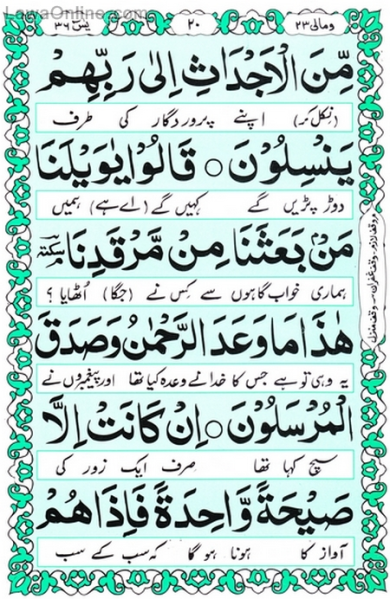 LawaOnline.com
ومالی ٢٣
٢٠
یٰسٓ ٣٦
مِّنَ الْاَجْدَاثِ اِلٰى رَبِّهِمْ
(نکل کر) اپنے پروردگار کی طرف
يَنْسِلُوْنَ ۝ قَالُوْا يٰوَيْلَنَا
دوڑ پڑیں گے کہیں گے (اے ہے) ہمیں
مَنْۢ بَعَثَنَا مِنْ مَّرْقَدِنَا سكتة
ہماری خواب گاہوں سے کس نے (جگا) اُٹھایا ؟
هٰذَا مَا وَعَدَ الرَّحْمٰنُ وَصَدَقَ
یہ وہی تو ہے جس کا خدا نے وعدہ کیا تھا اور پیغمبروں نے
الْمُرْسَلُوْنَ ۝ اِنْ كَانَتْ اِلَّا
سچ کہا تھا صرف ایک زور کی
صَيْحَةً وَّاحِدَةً فَاِذَا هُمْ
آواز کا ہونا ہوگا کہ سب کے سب